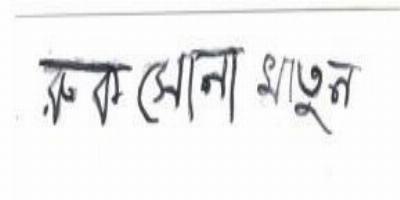 রুকসোনা খাতুন